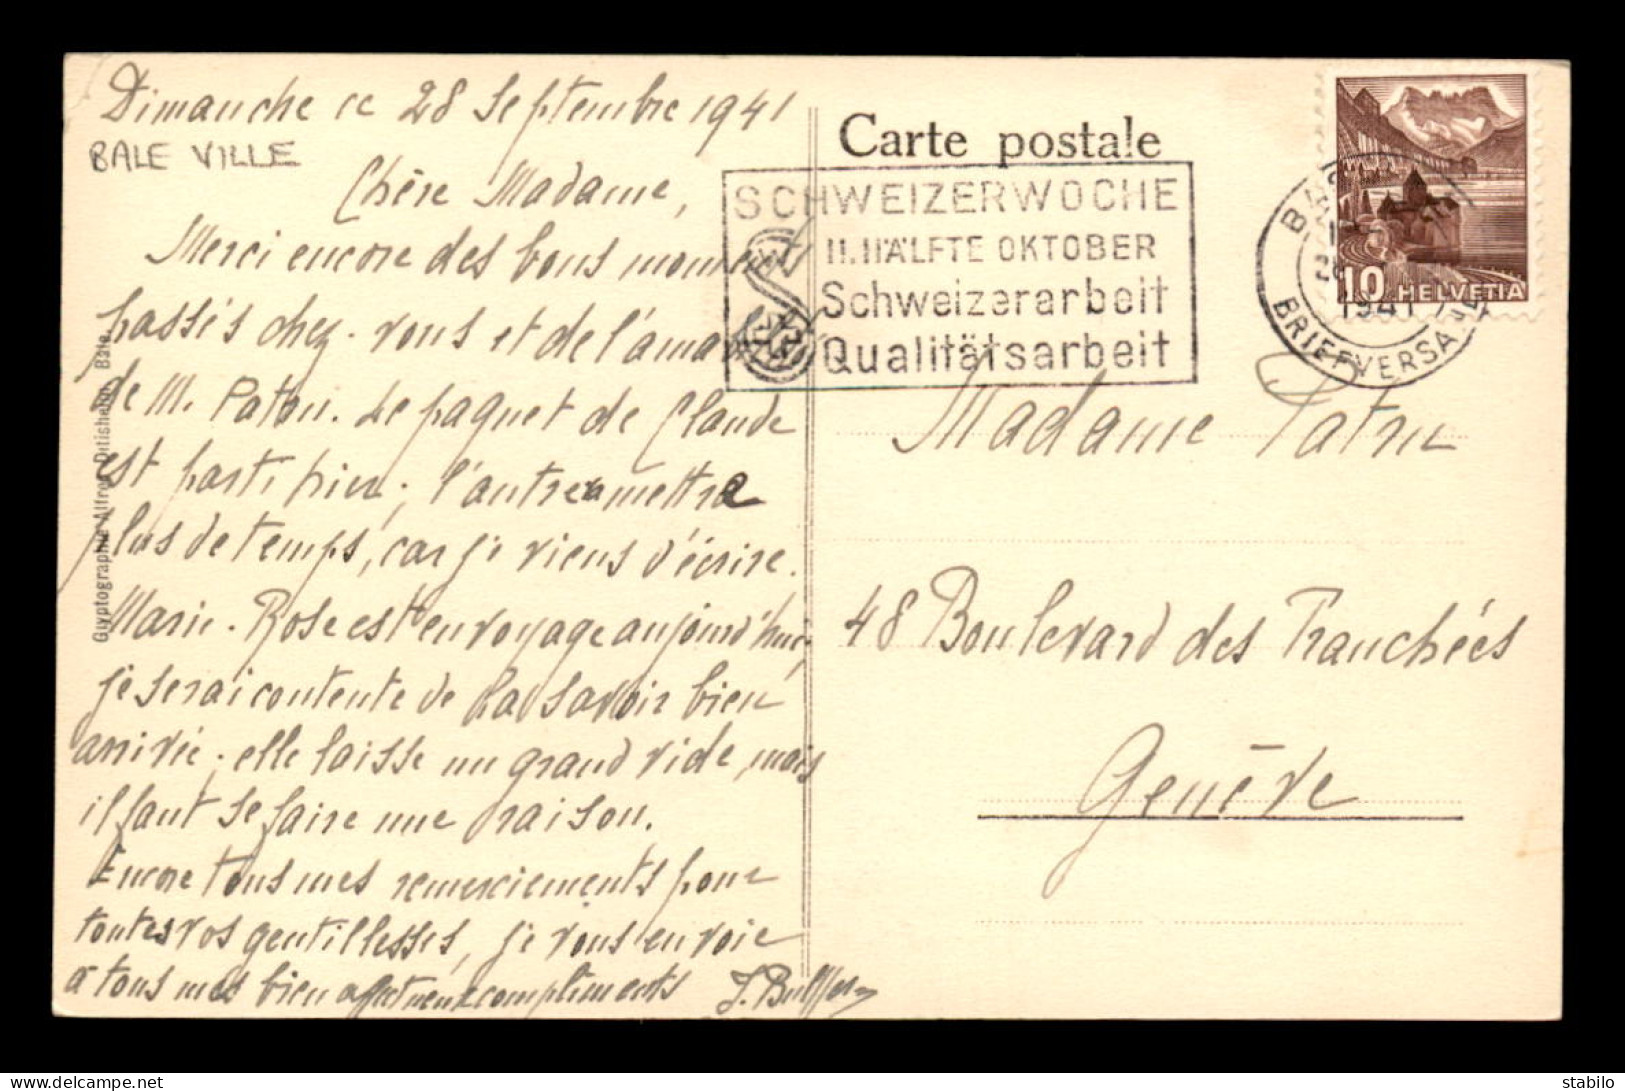 Dimanche ce 28 Septembre 1941
BALE VILLE
Chère Madame,
Merci encore des bons moments
passés chez-vous et de l'amabilité
de M. Patou. Le paquet de Claude
est parti hier; l'autre mettra
plus de temps, car je viens d'écrire.
Marie-Rose est en voyage aujourd'hui;
je serai contente de la savoir bien
arrivée; elle laisse un grand vide, mais
il faut se faire une raison.
Encore tous mes remerciements pour
toutes vos gentillesses, je vous envoie
à tous mes bien affectueux compliments
Glyptographie Alfred Ditisheim, Bâle.
Carte postale
SCHWEIZERWOCHE
II. HÄLFTE OKTOBER
Schweizerarbeit
Qualitätsarbeit
10 HELVETIA
1941
BRIEFVERSAND
Madame Patru
48 Boulevard des Tranchées
Genève
delcampe.net
stabilo